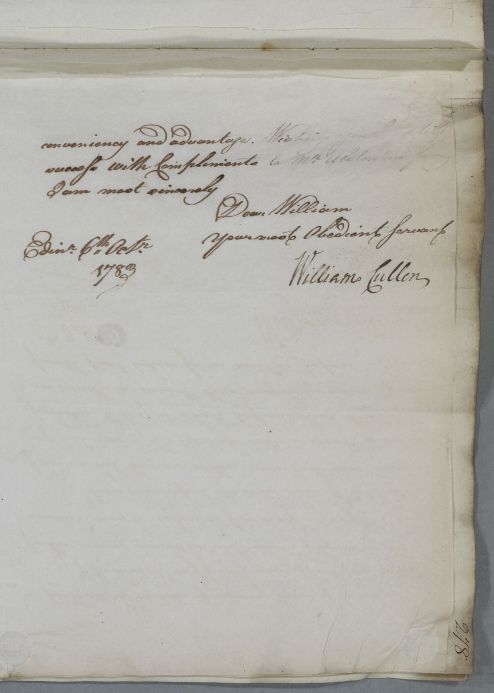 conveniency and advantage. Wishing you
success with Compliments to Mrs.
I am most sincerely
Dear William
Your most Obedient Servant
Edinr. 6th. Octr.
1783
William Cullen
218